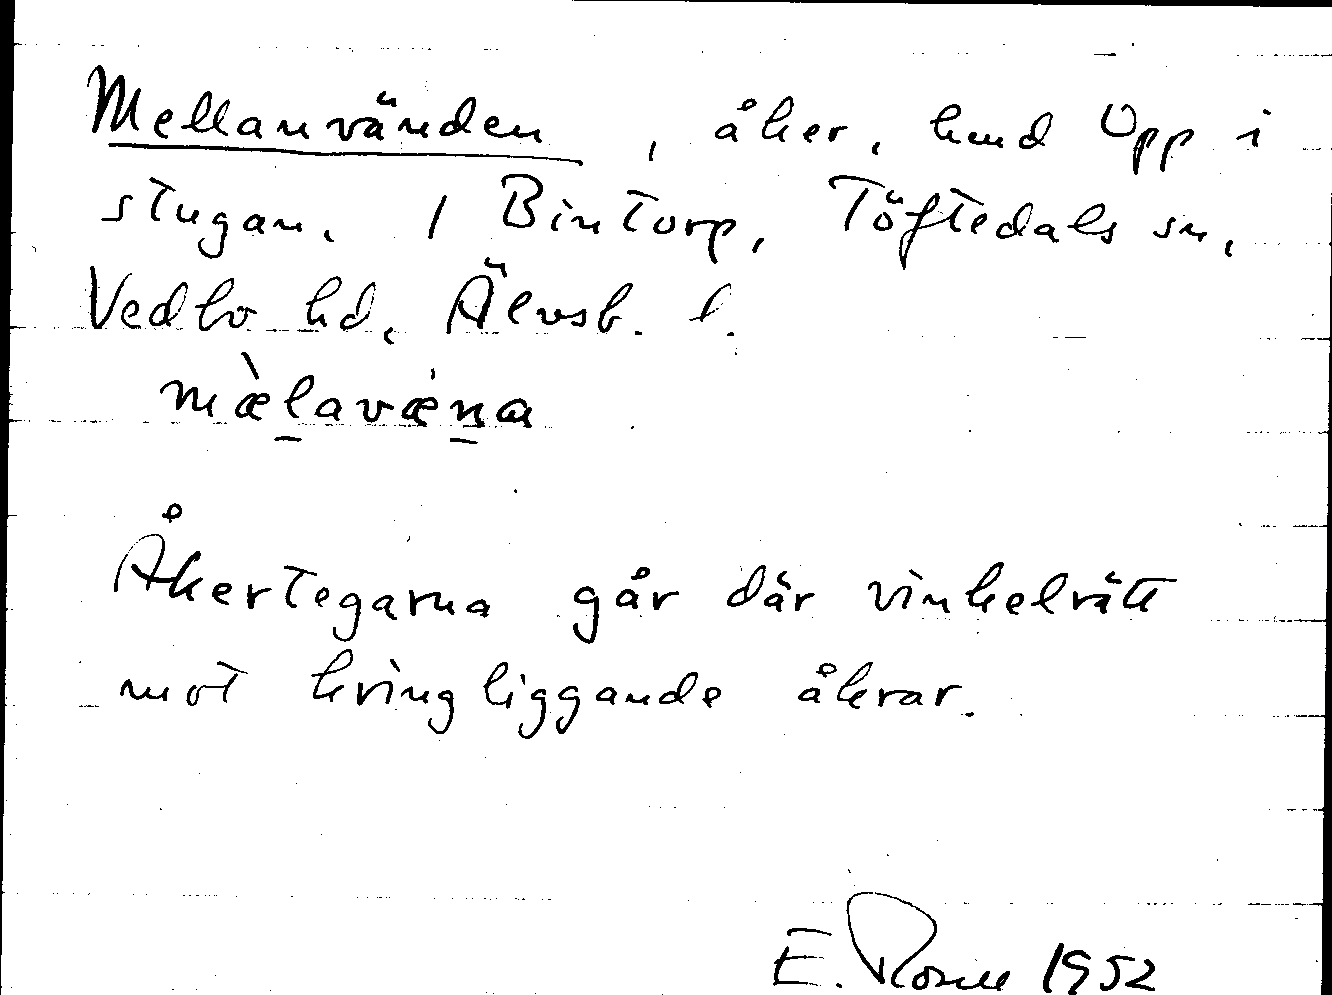 Mellanvänden, åker, hmd Upp i
stugan. 1 Bintorp, Töftedals sn,
Vedbo hd, Älvsb. l.
mæ̀l̠avæ̇n̠a
Åkertegarna går där vinkelrätt
mot kringliggande åkrar.
E. 1952